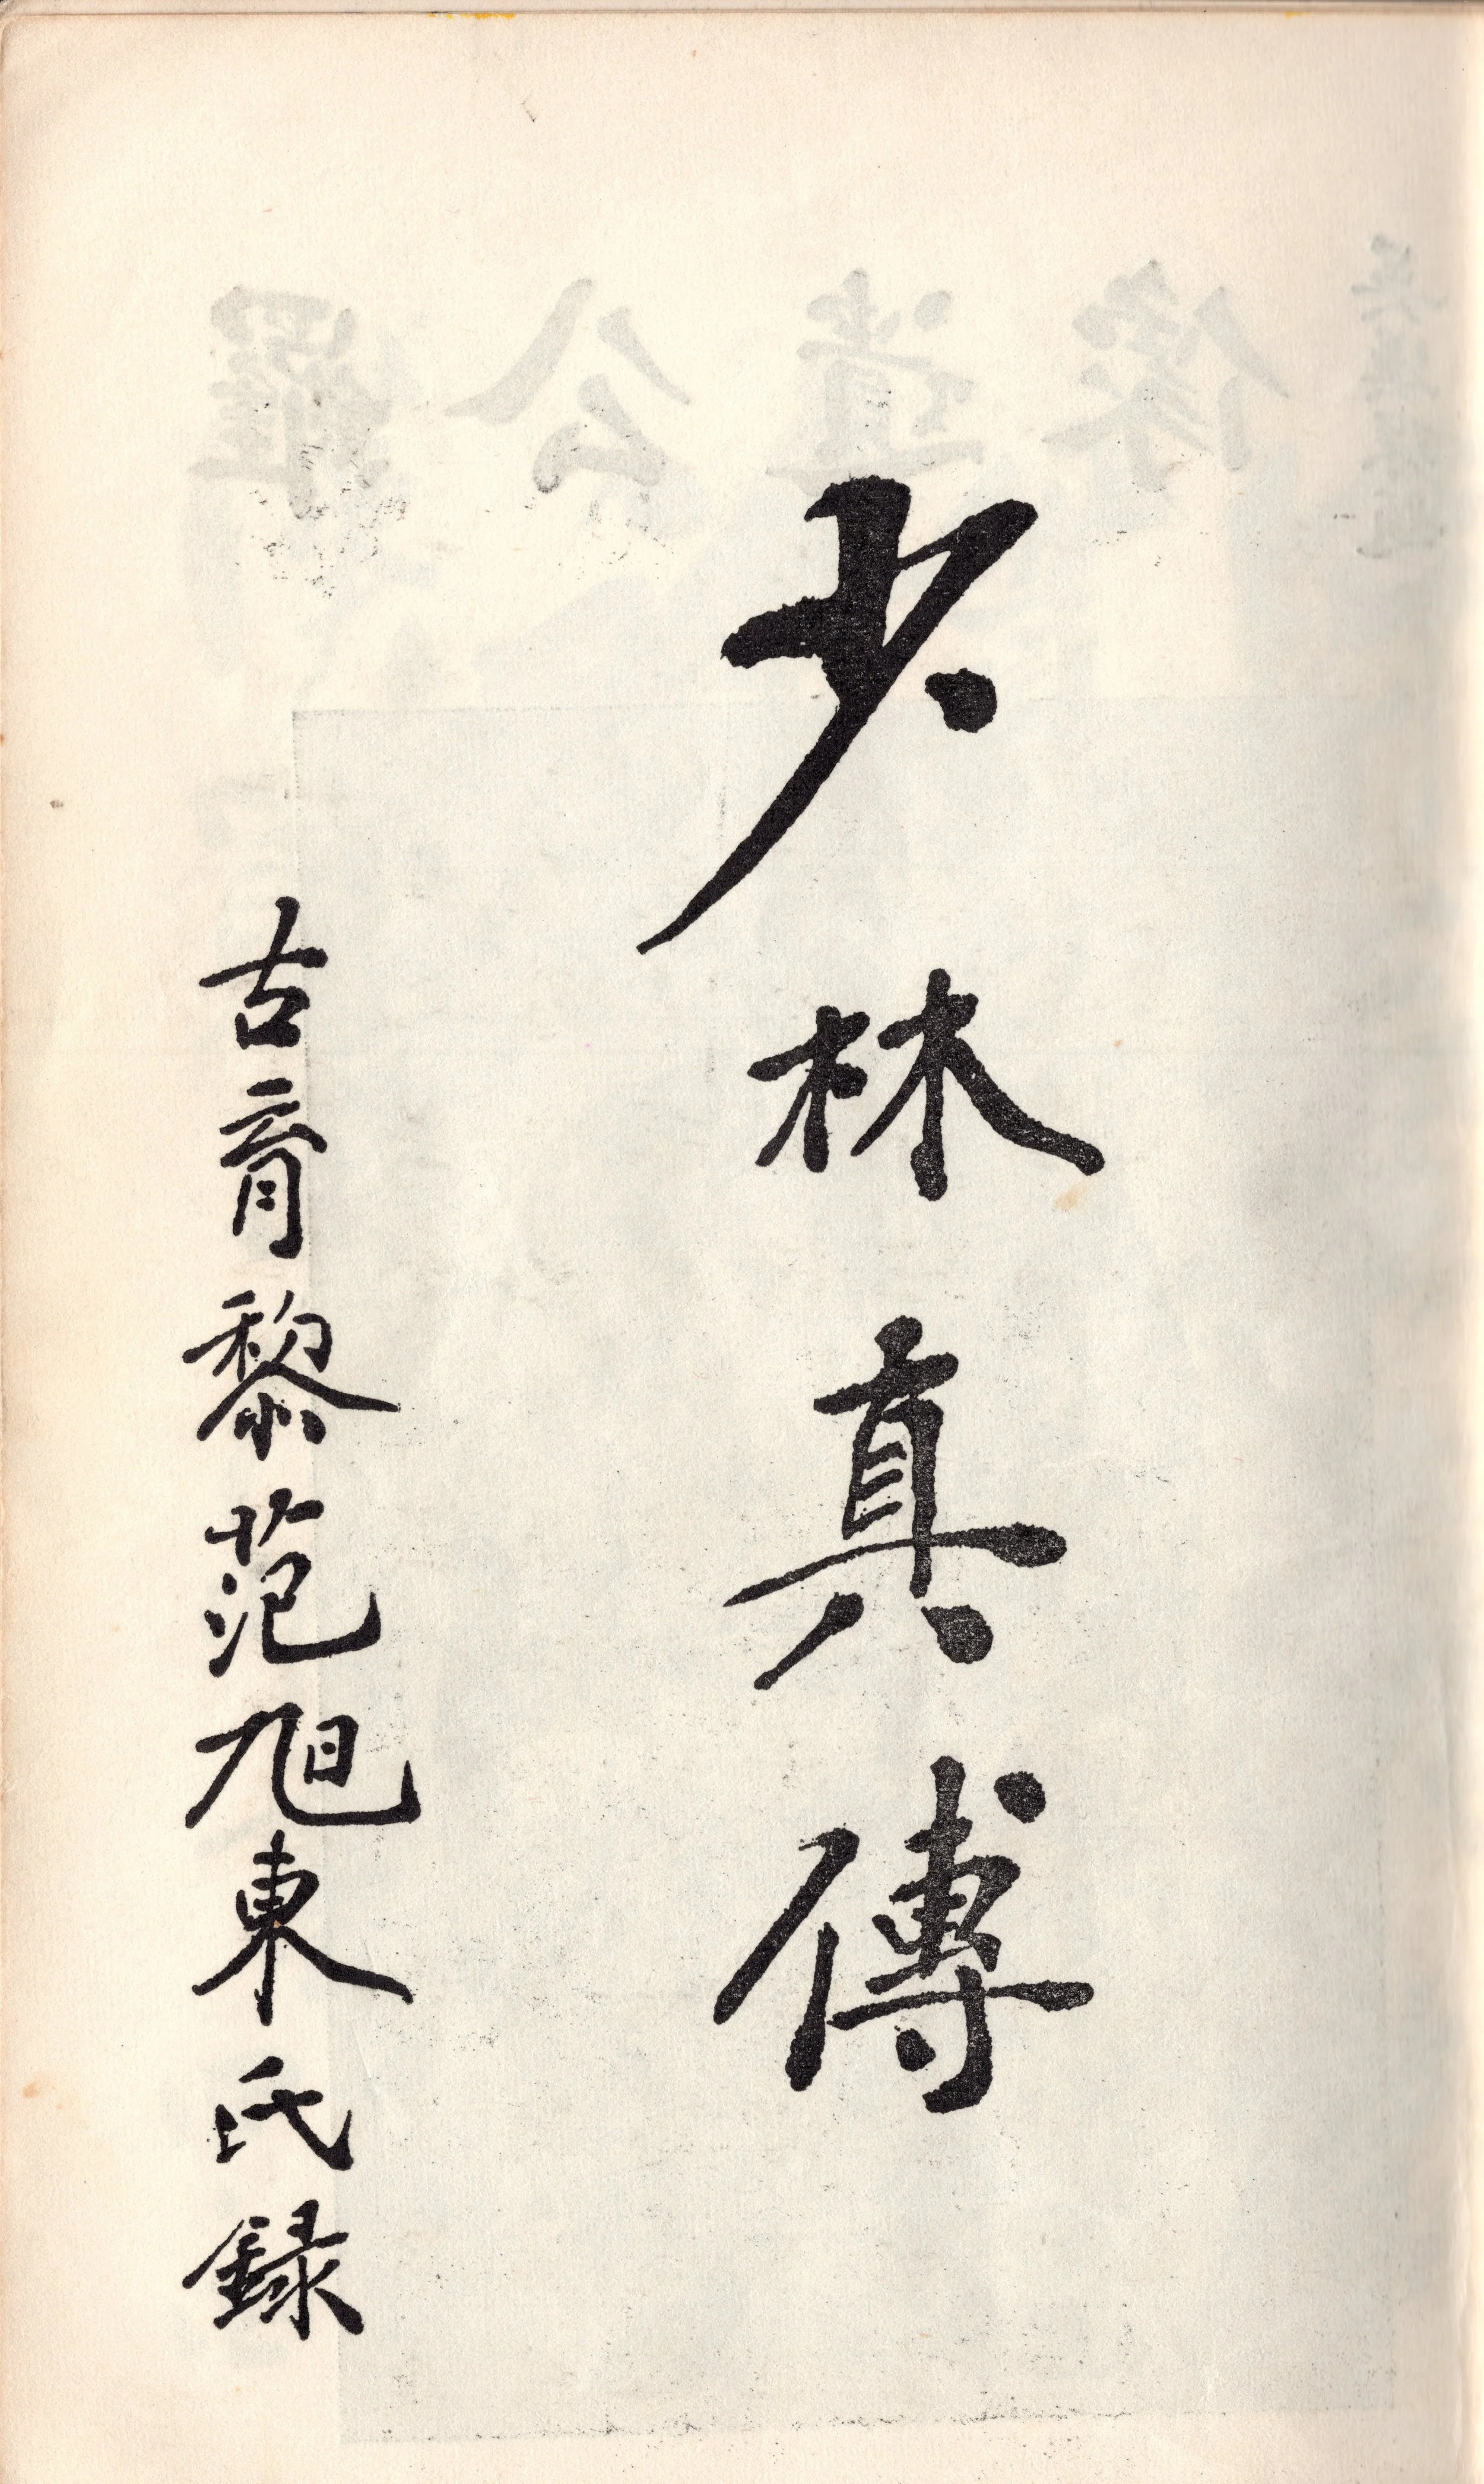 少林真傳
古育黎范旭東氏録